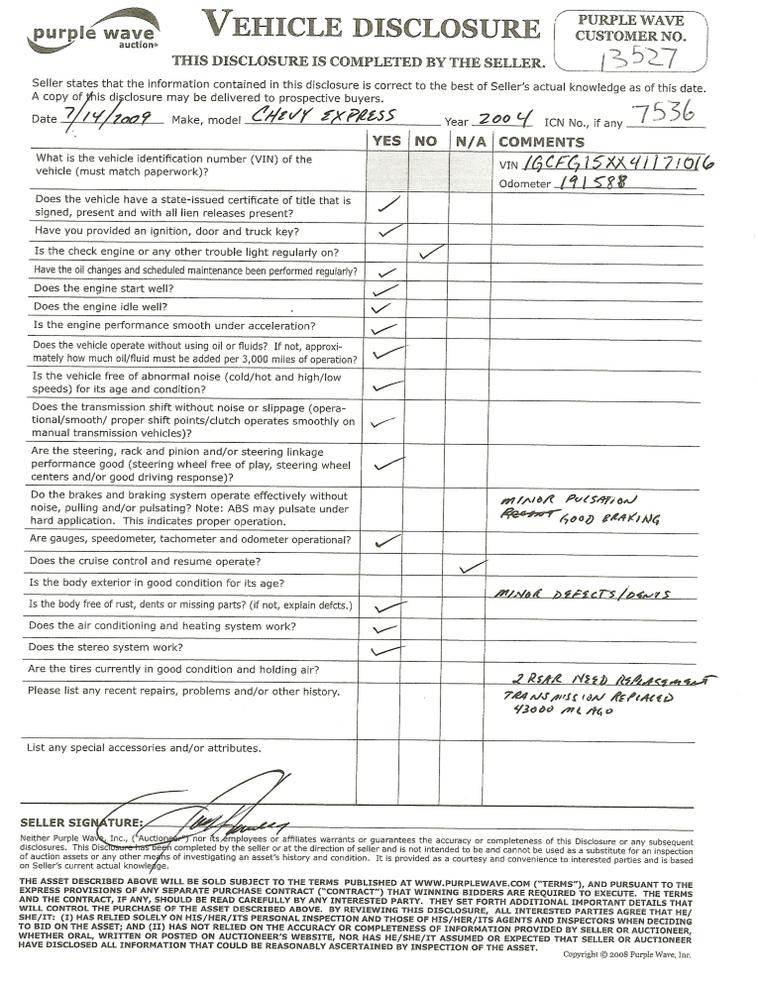 purple wave
auction®
VEHICLE DISCLOSURE
THIS DISCLOSURE IS COMPLETED BY THE SELLER.
PURPLE WAVE
CUSTOMER NO.
13527
Seller states that the information contained in this disclosure is correct to the best of Seller's actual knowledge as of this date.
A copy of this disclosure may be delivered to prospective buyers.
Date 7/14/2009 Make, model CHEVY EXPRESS Year 2004 ICN No., if any 7536
YES NO N/A COMMENTS
What is the vehicle identification number (VIN) of the
vehicle (must match paperwork)?
VIN 1GCFG15XX41171016
Odometer 191588
Does the vehicle have a state-issued certificate of title that is
signed, present and with all lien releases present?
Have you provided an ignition, door and truck key?
Is the check engine or any other trouble light regularly on?
Have the oil changes and scheduled maintenance been performed regularly?
Does the engine start well?
Does the engine idle well?
Is the engine performance smooth under acceleration?
Does the vehicle operate without using oil or fluids? If not, approxi-
mately how much oil/fluid must be added per 3,000 miles of operation?
Is the vehicle free of abnormal noise (cold/hot and high/low
speeds) for its age and condition?
Does the transmission shift without noise or slippage (opera-
tional/smooth/ proper shift points/clutch operates smoothly on
manual transmission vehicles)?
Are the steering, rack and pinion and/or steering linkage
performance good (steering wheel free of play, steering wheel
centers and/or good driving response)?
Do the brakes and braking system operate effectively without
noise, pulling and/or pulsating? Note: ABS may pulsate under
hard application. This indicates proper operation.
MINOR PULSATION
GOOD BRAKING
Are gauges, speedometer, tachometer and odometer operational?
Does the cruise control and resume operate?
Is the body exterior in good condition for its age?
MINOR DEFECTS/DENTS
Is the body free of rust, dents or missing parts? (if not, explain defcts.)
Does the air conditioning and heating system work?
Does the stereo system work?
Are the tires currently in good condition and holding air?
2 REAR NEED REPLACEMENT
Please list any recent repairs, problems and/or other history.
TRANSMISSION REPLACED
43000 MI. AGO
List any special accessories and/or attributes.
SELLER SIGNATURE:
Neither Purple Wave, Inc., ("Auctioneer") nor its employees or affiliates warrants or guarantees the accuracy or completeness of this Disclosure or any subsequent
disclosures. This Disclosure has been completed by the seller or at the direction of seller and is not intended to be and cannot be used as a substitute for an inspection
of auction assets or any other means of investigating an asset's history and condition. It is provided as a courtesy and convenience to interested parties and is based
on Seller's current actual knowledge.
THE ASSET DESCRIBED ABOVE WILL BE SOLD SUBJECT TO THE TERMS PUBLISHED AT WWW.PURPLEWAVE.COM ("TERMS"), AND PURSUANT TO THE
EXPRESS PROVISIONS OF ANY SEPARATE PURCHASE CONTRACT ("CONTRACT") THAT WINNING BIDDERS ARE REQUIRED TO EXECUTE. THE TERMS
AND THE CONTRACT, IF ANY, SHOULD BE READ CAREFULLY BY ANY INTERESTED PARTY. THEY SET FORTH ADDITIONAL IMPORTANT DETAILS THAT
WILL CONTROL THE PURCHASE OF THE ASSET DESCRIBED ABOVE. BY REVIEWING THIS DISCLOSURE, ALL INTERESTED PARTIES AGREE THAT HE/
SHE/IT: (I) HAS RELIED SOLELY ON HIS/HER/ITS PERSONAL INSPECTION AND THOSE OF HIS/HER/ITS AGENTS AND INSPECTORS WHEN DECIDING
TO BID ON THE ASSET; AND (II) HAS NOT RELIED ON THE ACCURACY OR COMPLETENESS OF INFORMATION PROVIDED BY SELLER OR AUCTIONEER,
WHETHER ORAL, WRITTEN OR POSTED ON AUCTIONEER'S WEBSITE, NOR HAS HE/SHE/IT ASSUMED OR EXPECTED THAT SELLER OR AUCTIONEER
HAVE DISCLOSED ALL INFORMATION THAT COULD BE REASONABLY ASCERTAINED BY INSPECTION OF THE ASSET.
Copyright © 2008 Purple Wave, Inc.